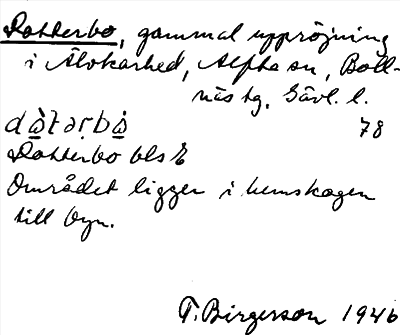 Dotterbo, gammal uppröjning
i Älvkarhed, Alfta sn, Boll-
näs tg, Gävl. l.
78
Dotterbo bls E
Området ligger i hemskogen
till byn.
T. Birgersson 1946